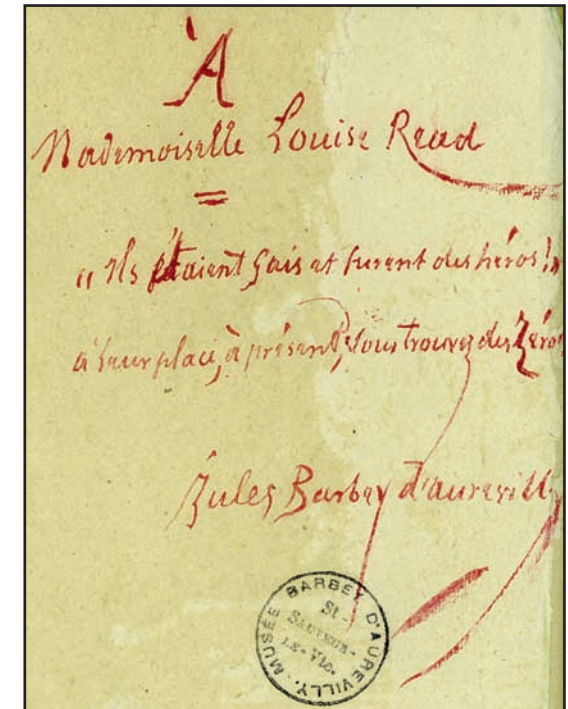 À
Mademoiselle Louise Read
=
« Ils étaient gais et furent des héros !»
à leur place, à présent, vous trouvez des Zéros
Jules Barbey d'aurevilly
MUSÉE BARBEY D'AUREVILLY
St-
SAUVEUR-
LE-Vte.